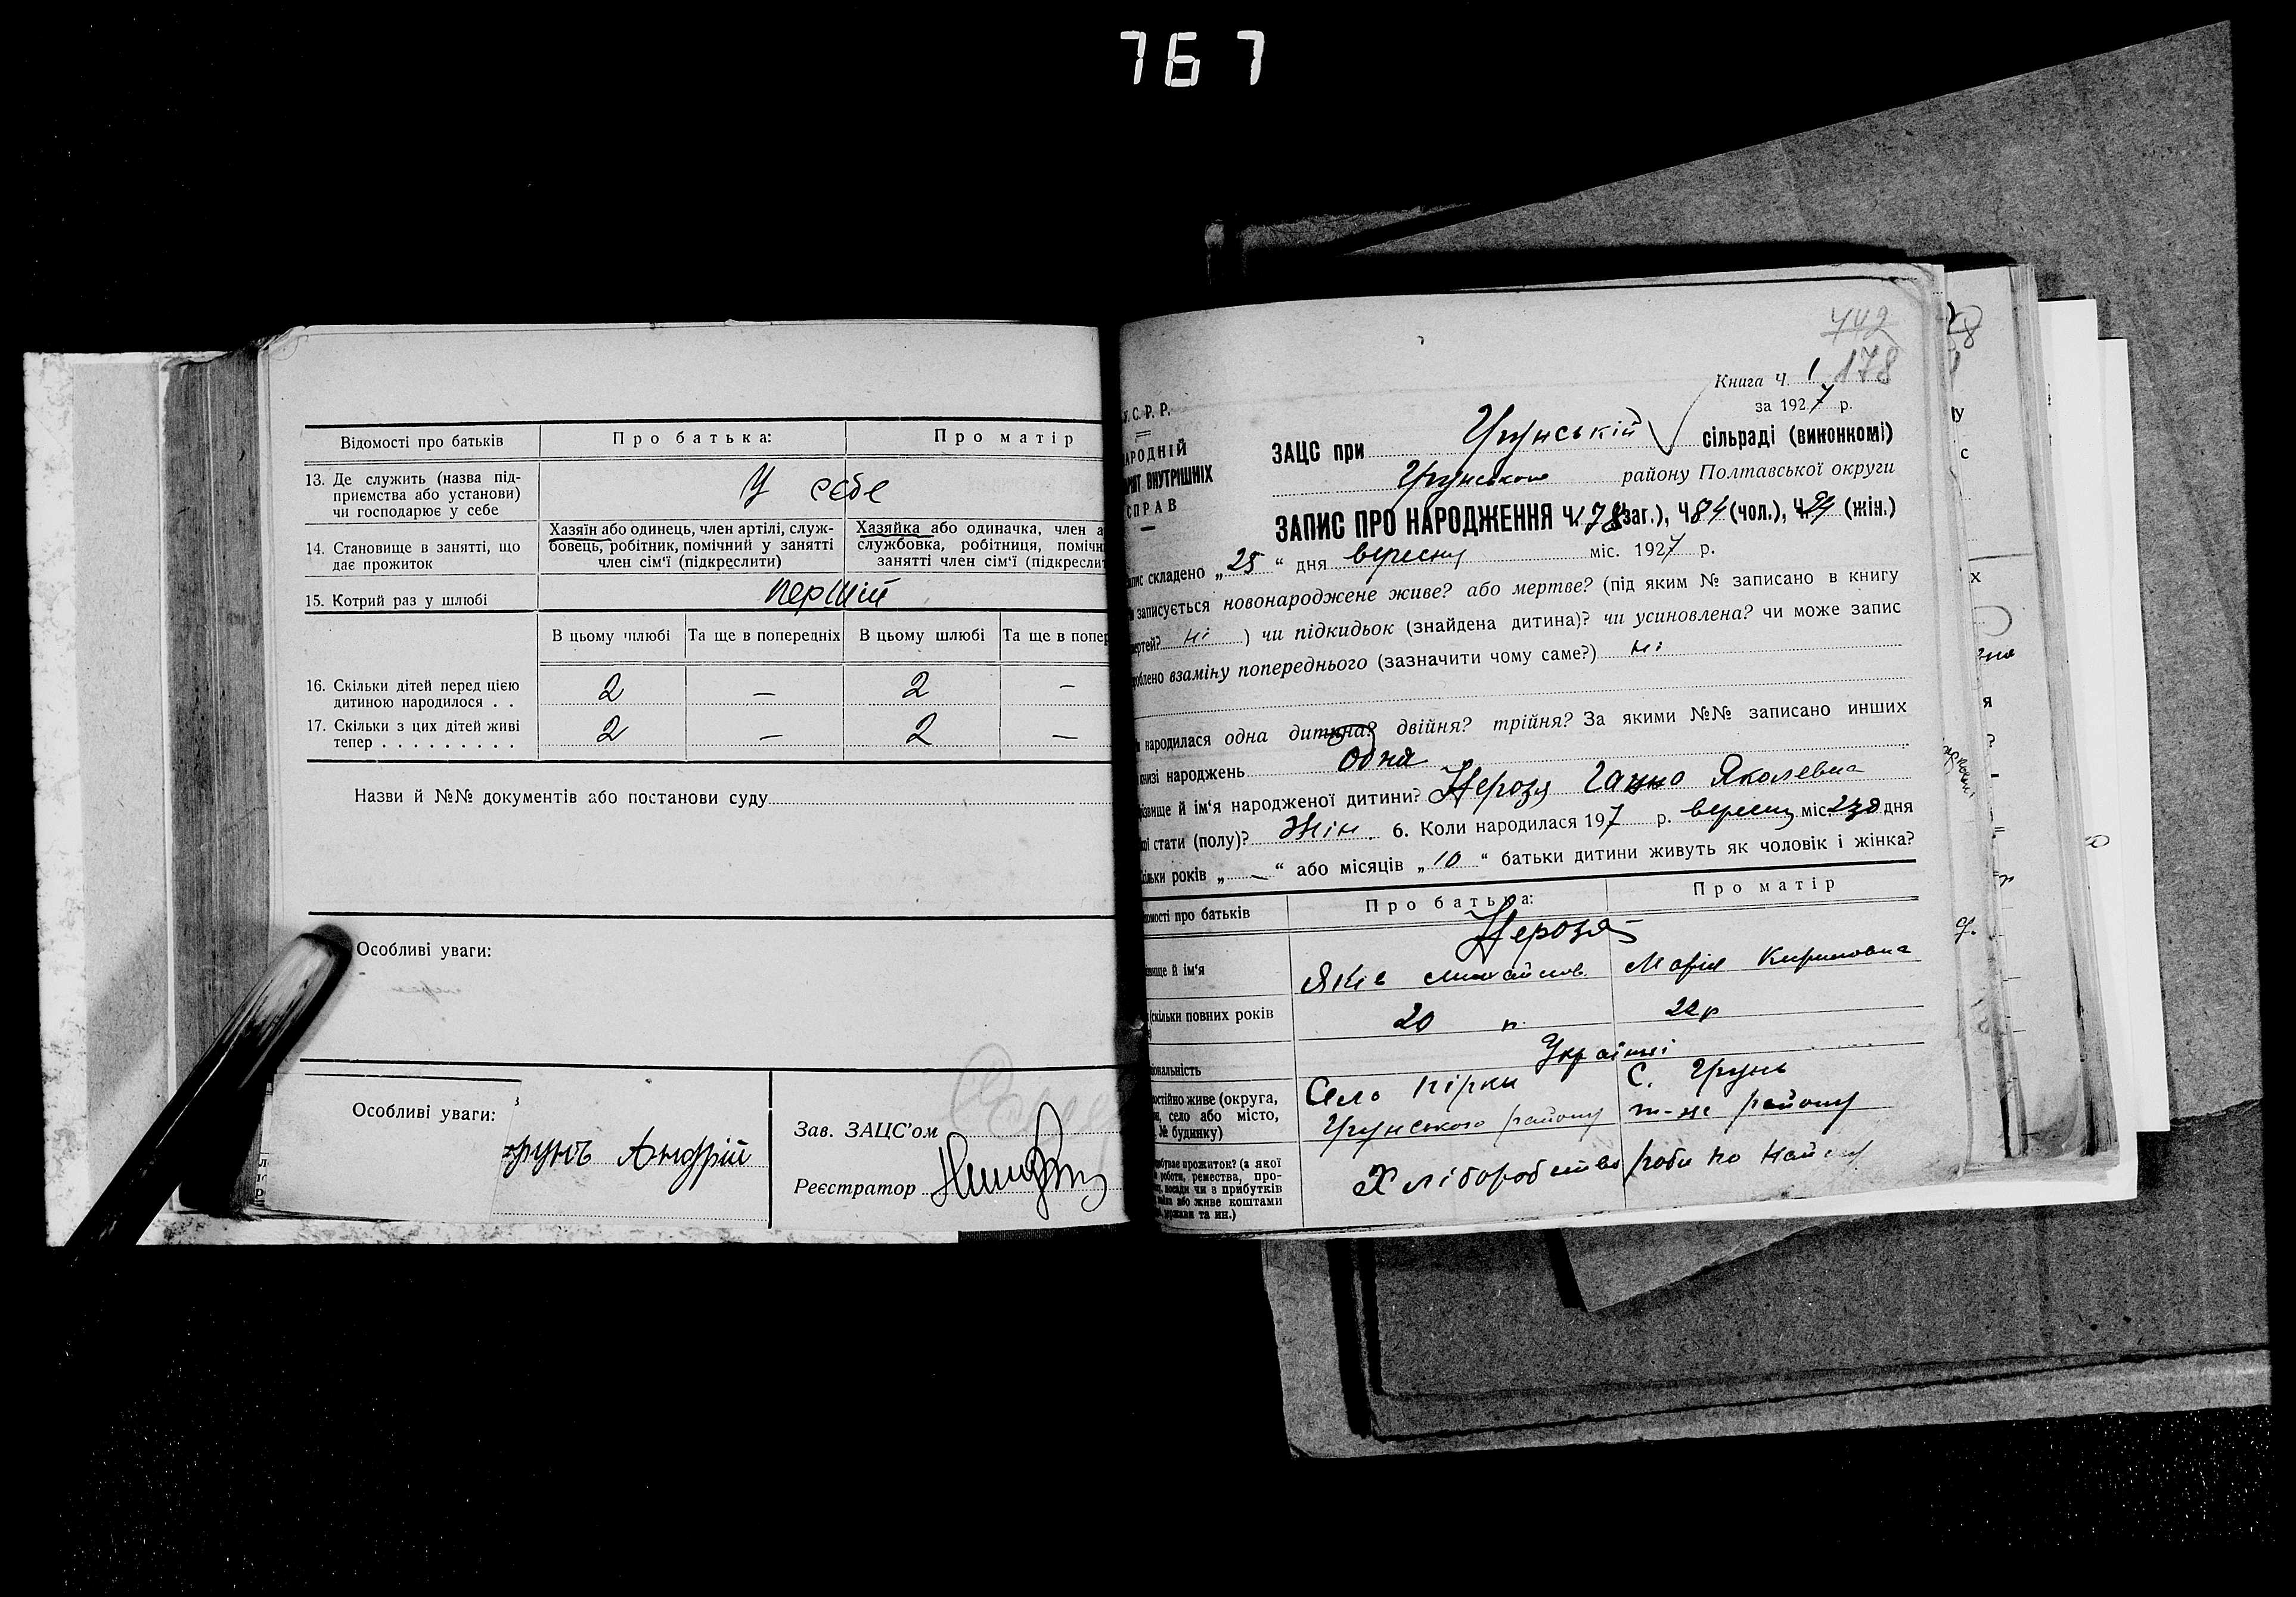 767
Відомості про батьків
Про батька:
Про матір
13. Де служить (назва під-
приємства або установи)
чи господарює у себе
У себе
14. Становище в занятті, що
дає прожиток
Хазяїн або одинець, член артілі, служ-
бовець, робітник, помічний у занятті
член сім'ї (підкреслити)
Хазяйка або одиначка, член а
службовка, робітниця, помічн
занятті член сім'ї (підкреслит
15. Котрий раз у шлюбі
перший
В цьому шлюбі
Та ще в попередніх
В цьому шлюбі
Та ще в попер
16. Скільки дітей перед цією
дитиною народилося . .
2 — 2 —
17. Скільки з цих дітей живі
тепер . . . . . . . . .
2 — 2 —
Назви й №№ документів або постанови суду
Особливі уваги:
Особливі уваги:
Андрій
Зав. ЗАЦС'ом
Реєстратор
442
178
Книга Ч. 1
за 1927 р.
У.С.Р.Р.
АРОДНІЙ
ВНУТРІШНІХ
СПРАВ
ЗАЦС при Грунській сільраді (виконкомі)
Грунського району Полтавської округи
ЗАПИС ПРО НАРОДЖЕННЯ Ч. 178 (заг.), Ч. 84 (чол.), Ч. 94 (жін.)
пис складено „25" дня вересня міс. 1927 р.
записується новонароджене живе? або мертве? (під яким № записано в книгу
мертей? ні ) чи підкидьок (знайдена дитина)? чи усиновлена? чи може запис
роблено взаміну попереднього (зазначити чому саме?) ні
народилася одна дитина? двійня? трійня? За якими №№ записано инших
книзі народжень одна
звище й ім'я народженої дитини? Нерозя Ганна Яковлевна
стати (полу)? Жін. 6. Коли народилася 197 р. вересня міс. 23 дня
льки років „—" або місяців „10" батьки дитини живуть як чоловік і жінка?
омості про батьків
Про батька:
Про матір
Нерозя
вище й ім'я
Яків Михайлов.
Марія Кириловна
скільки повних років
20 р.
22 р
Україні
іональність
остійно живе (округа,
н, село або місто,
№ будинку)
Село Пірки
Грунського району
С. Грунь
т-же району
обуває прожиток? (з якої
роботи, ремества, про-
посади чи з прибутків
або живе коштами
держави та ин.)
Хліборобство
робе по найму